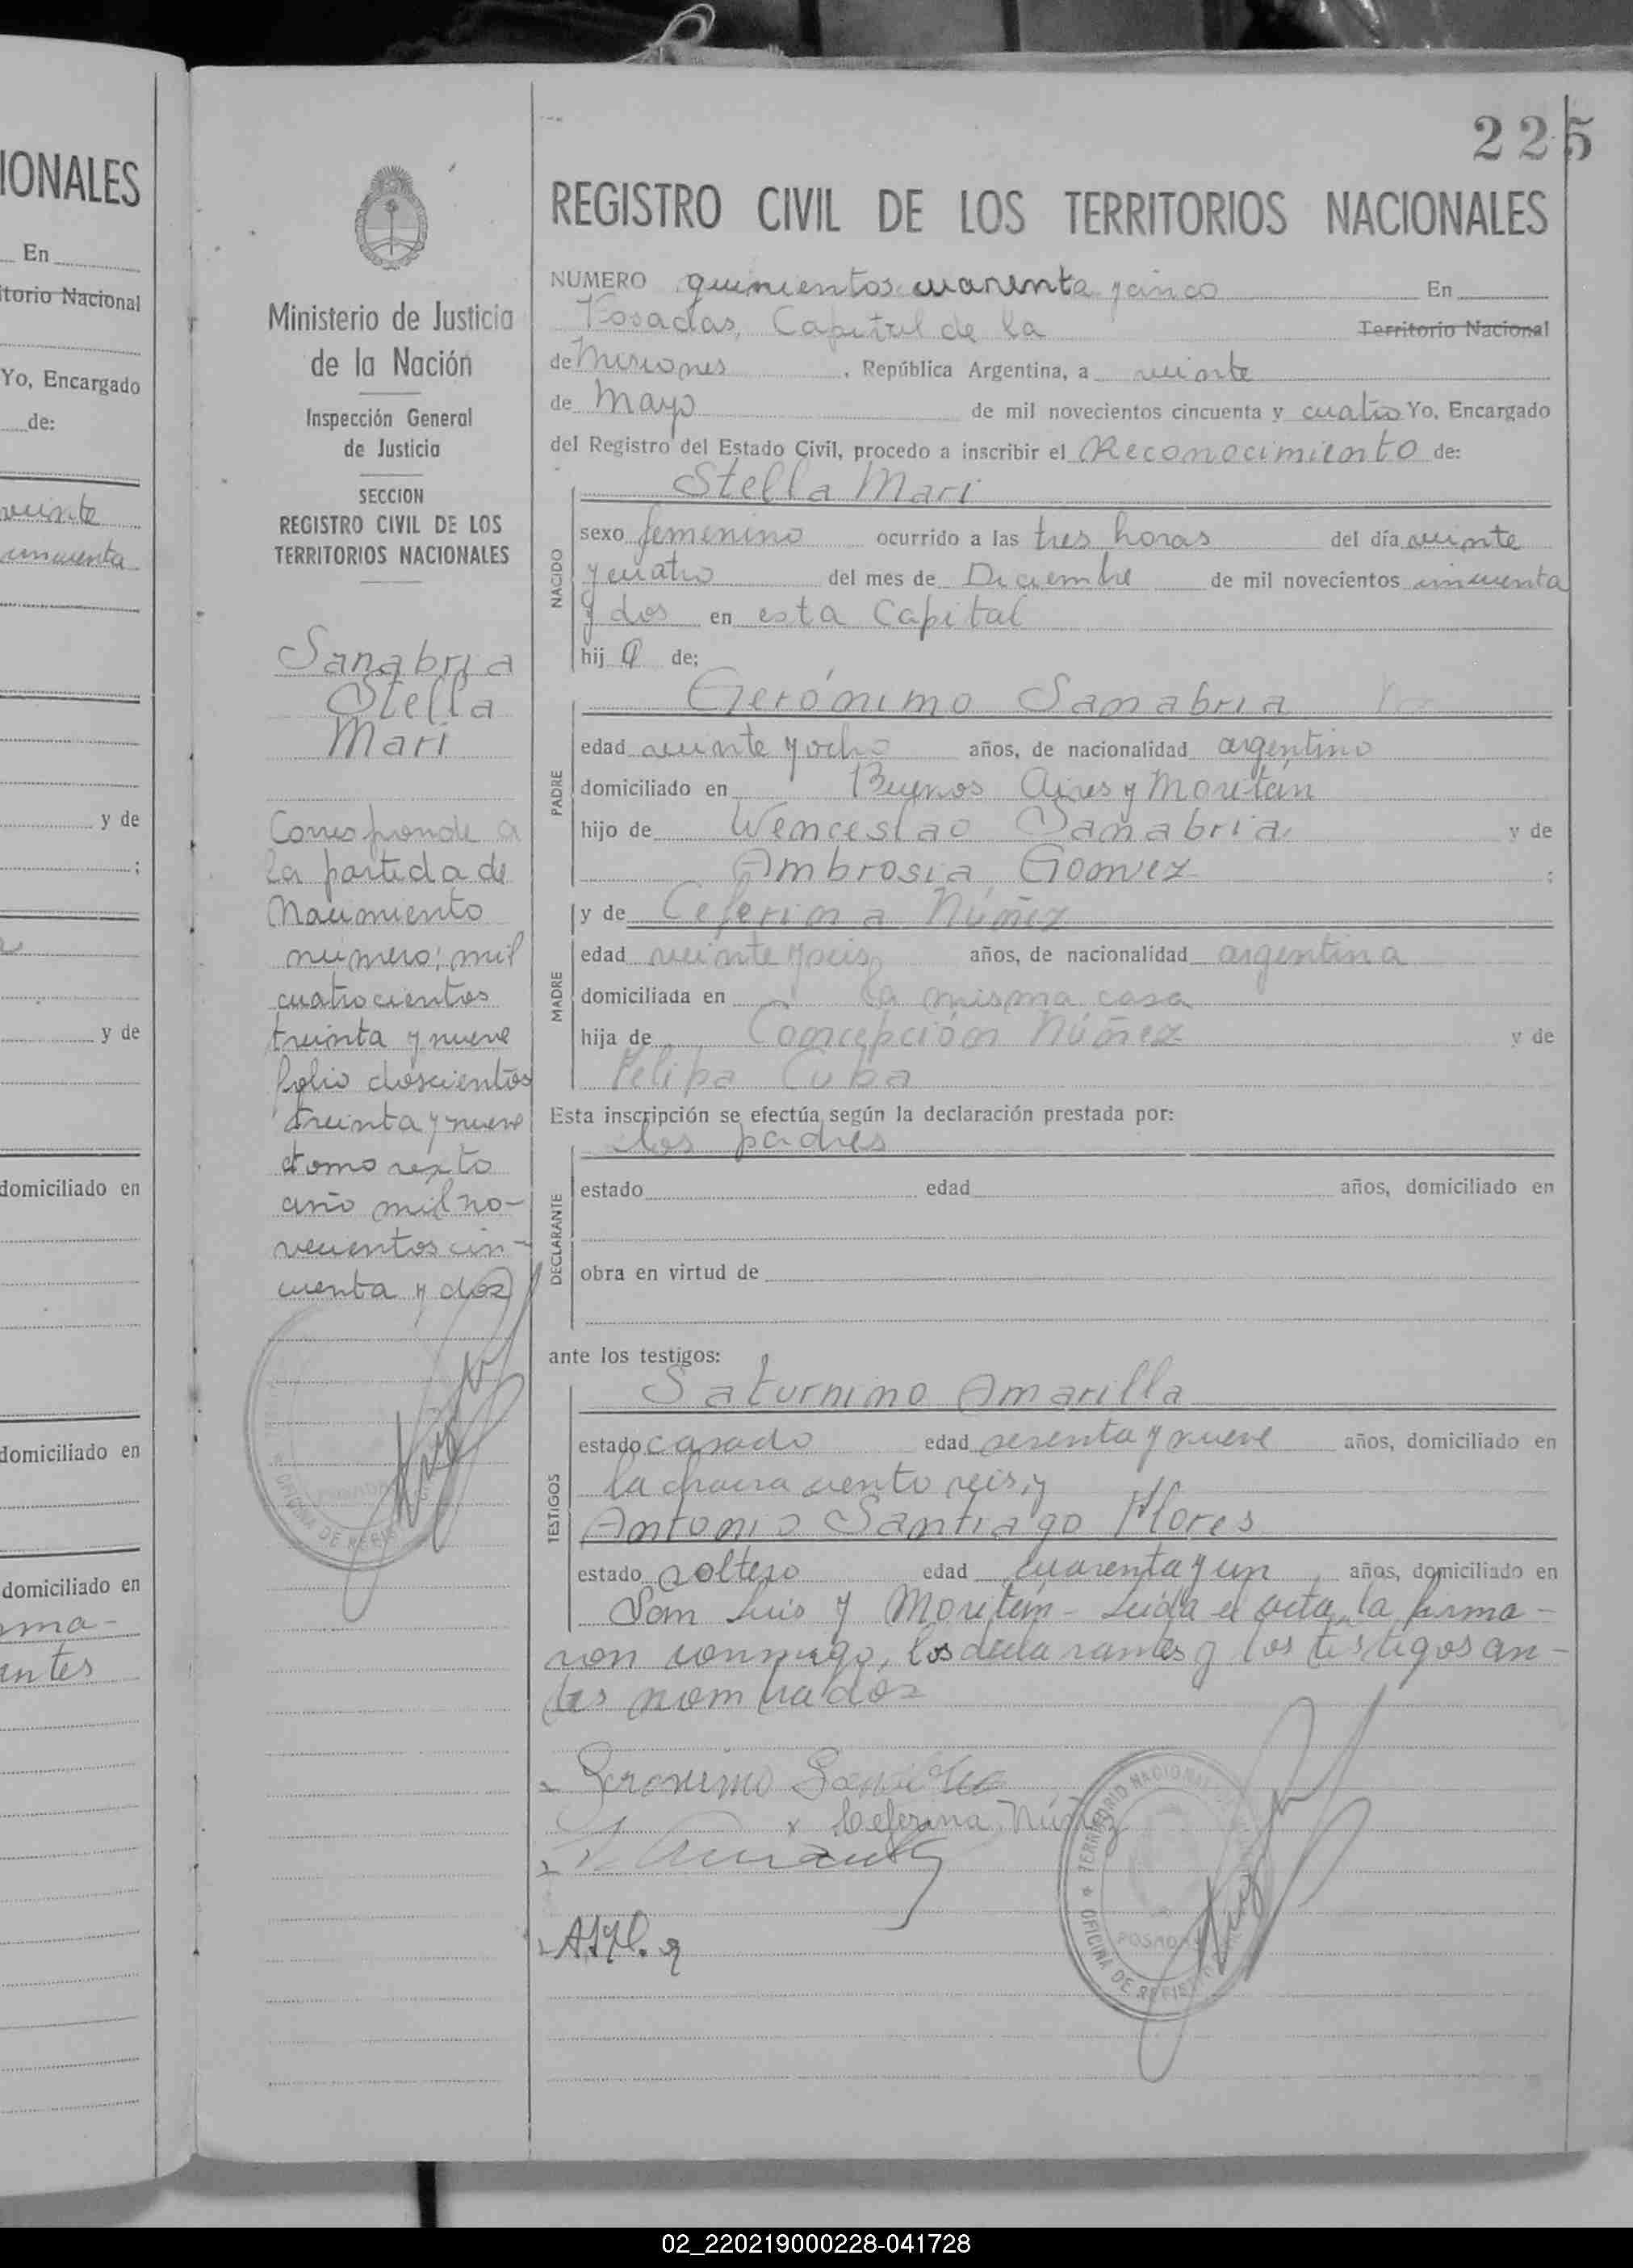 IONALES
En
itorio Nacional
Yo, Encargado
de:
veinte
cincuenta
y de
;
y de
domiciliado en
domiciliado en
domiciliado en
rma-
antes
225
Ministerio de Justicia
de la Nación
Inspección General
de Justicia
SECCION
REGISTRO CIVIL DE LOS
TERRITORIOS NACIONALES
Sanabria
Stella
Mari
Corresponde a
la partida de
Nacimiento
número: mil
cuatrocientos
treinta y nueve
folio doscientos
treinta y nueve
tomo sexto
año mil no-
vecientos cin-
cuenta y dos
OFICINA DE REGIS
REGISTRO CIVIL DE LOS TERRITORIOS NACIONALES
NUMERO quinientos cuarenta y cinco En
Posadas, Capital de la Territorio Nacional
de Misiones, República Argentina, a veinte
de Mayo de mil novecientos cincuenta y cuatro Yo, Encargado
del Registro del Estado Civil, procedo a inscribir el Reconocimiento de:
Stella Mari
NACIDO
sexo femenino ocurrido a las tres horas del día veinte
y cuatro del mes de Diciembre de mil novecientos cincuenta
y dos en esta Capital
hij a de;
PADRE
Gerónimo Sanabria
edad veinte y ocho años, de nacionalidad argentino
domiciliado en Buenos Aires y Moritán
hijo de Wenceslao Sanabria y de
Ambrosia Gomez ;
y de Ceferina Núñez
MADRE
edad veinte y seis años, de nacionalidad argentina
domiciliada en la misma casa
hija de Concepción Núñez y de
Felipa Cuba
Esta inscripción se efectúa según la declaración prestada por:
los padres
DECLARANTE
estado edad años, domiciliado en
obra en virtud de
ante los testigos:
TESTIGOS
Saturnino Amarilla
estado casado edad sesenta y nueve años, domiciliado en
la chacra ciento seis, y
Antonio Santiago Flores
estado soltero edad cuarenta y un años, domiciliado en
San Luis y Moritán - Leída el acta, la firma-
ron conmigo, los declarantes y los testigos an-
tes nombrados
Geronimo Sanabria
x Ceferina Núñez
TERRITORIO NACIONAL
POSADAS
OFICINA DE REGIS
02_220219000228-041728